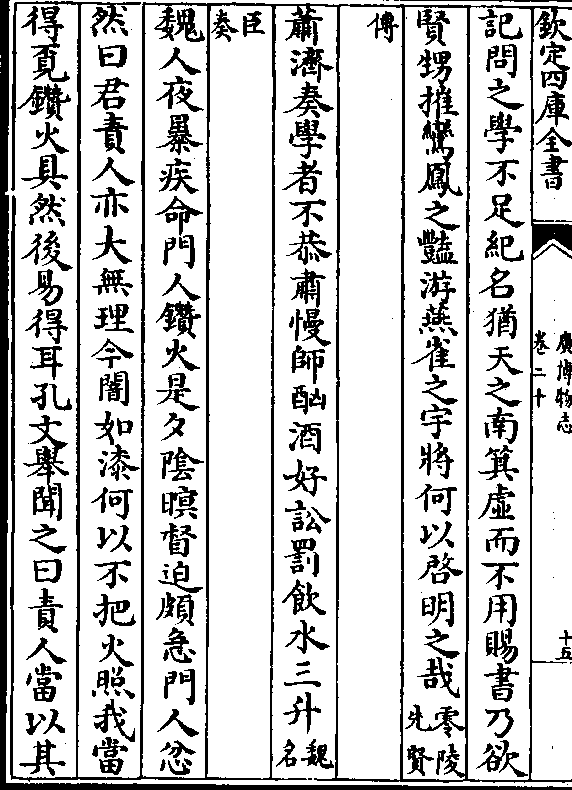 欽定四庫全書
廣博物志
卷二十
十五
記問之學不足紀名猶天之南箕虛而不用賜書乃欲
賢甥摧鸞鳳之豔游燕雀之宇將何以啓明之哉零陵先賢
傳
蕭濟奏學者不恭肅慢師酗酒好訟罰飲水三升魏名
臣奏
魏人夜暴疾命門人鑽火是夕陰暝督迫頗急門人忿
然曰君責人亦大無理今闇如漆何以不把火照我當
得覓鑽火具然後易得耳孔文舉聞之曰責人當以其